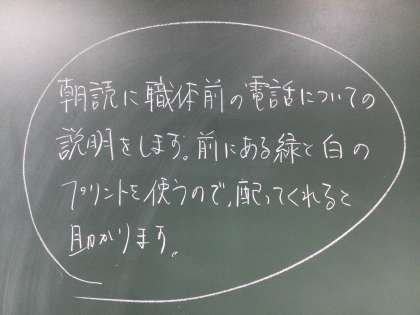 朝読に職体前の電話についての
説明をします。前にある緑と白の
プリントを使うので、配ってくれると
助かります。